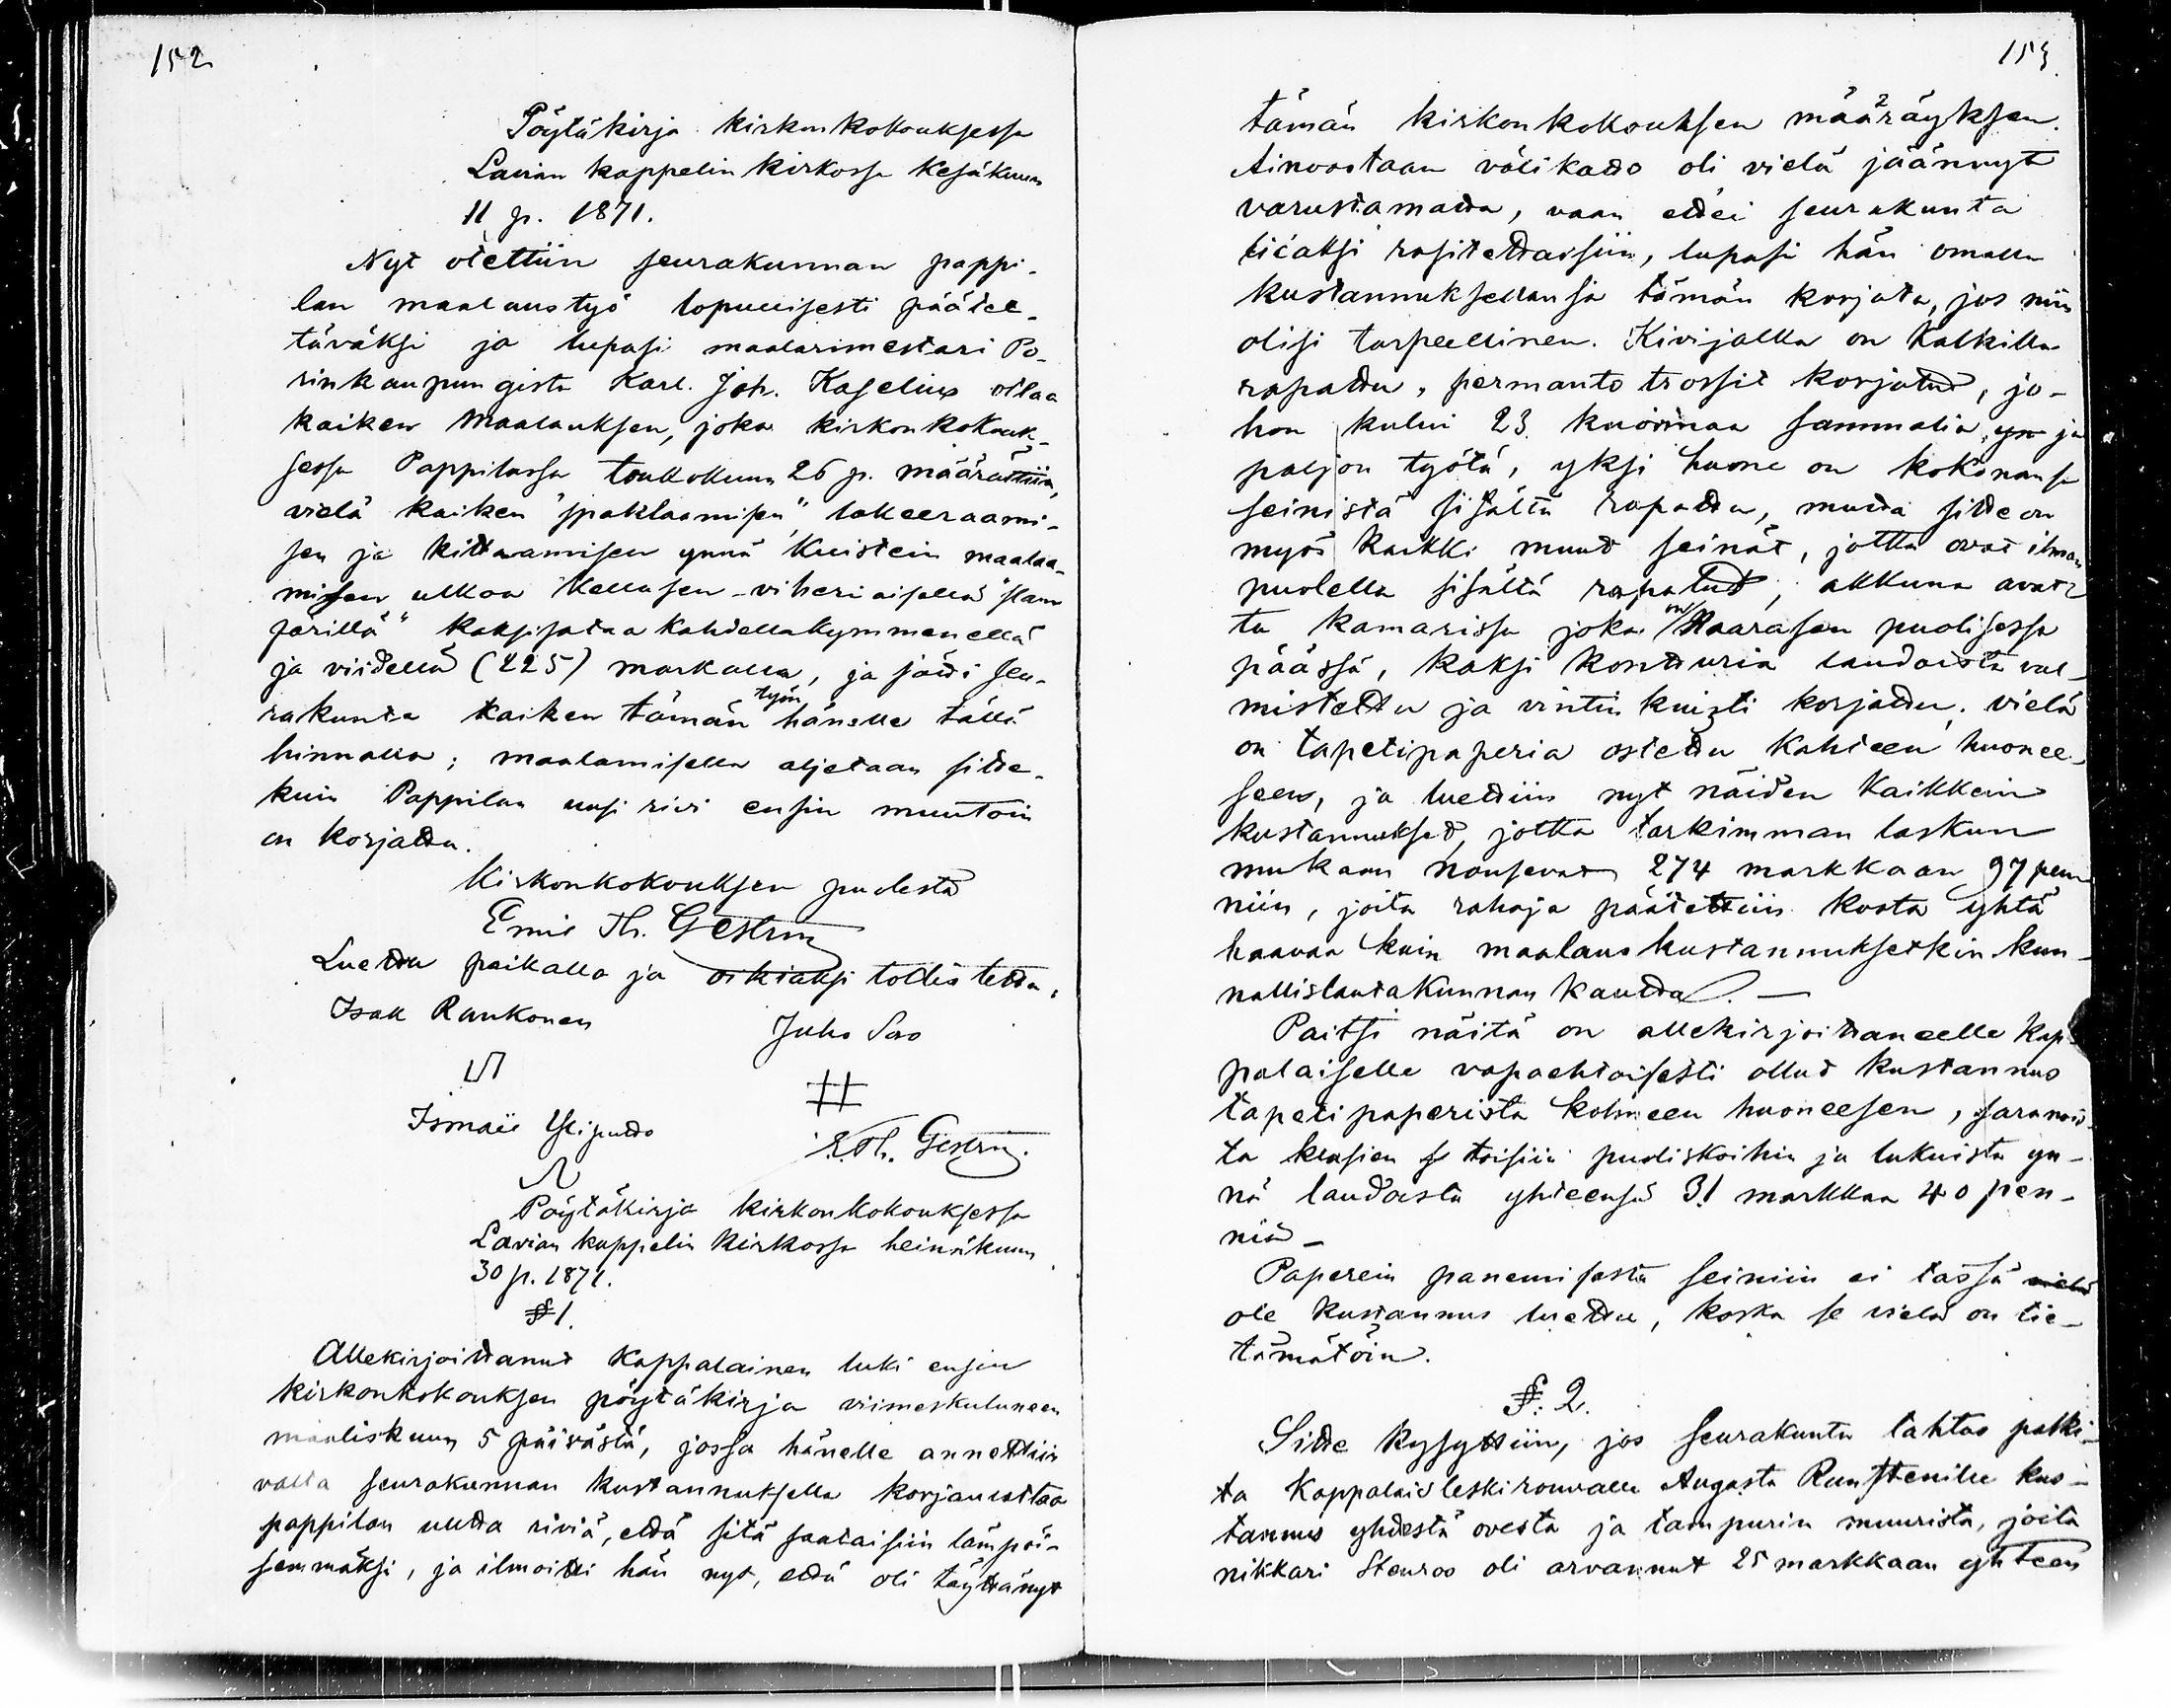 152
Pöytäkirja kirkonkokouksessa
Lavian kappelin kirkossa Kesäkuun
11 p. 1871.
Nyt otettiin seurakunnan pappi-
lan maalaustyö lopullisesti päätet-
täväksi ja lupasi maalarimestari Po-
rinkaupungista Karl. Joh. Kaselius ottaa
kaiken Maalauksen, joka kirkonkokouk-
sessa Pappilassa toukokuun 26 p. määrättiin,
vielä kaiken "spaklaamisen", lakeeraami-
sen ja kittaamisen ynnä Kuistein maalaa-
misen ulkoa Kellasen-viheriäisellä
färillä" kaksisataa kahdellakymmenellä
ja viidellä (225) markalla, ja jätti seu-
rakunta kaiken tämän työn hänelle tällä
hinnalla; maalamisella aljetaan sitte-
kuin Pappilan uusi rivi ensin muutoin
on korjattu.
Kirkonkokouksen puolesta
Emil Th. Gestrin
Luettu paikalla ja oikiaksi todistettu,
Isak Raukonen
Juho Savo
Ismael Yliputto
E. Th. Gestrin.
Pöytäkirja kirkonkokouksessa
Lavian kappelin Kirkossa heinäkuun
30 p. 1871.
§ 1.
Allekirjoittanut Kappalainen luki ensin
kirkonkokouksen pöytäkirja viimeskuluneen
maaliskuun 5 päivästä, jossa hänelle annettiin
valta seurakunnan kustannuksella korjauttaa
pappilan uutta riviä, että sitä saataisiin lämpöi-
semmäksi, ja ilmoitti hän nyt, että oli täyttänyt
153
tämän kirkonkokouksen määräyksen.
Ainoastaan välikatto oli vielä jäännyt
varustamatta, vaan ettei seurakunta
liiaksi rasitettaisiin, lupasi hän omalla
kustannuksellansa tämän korjata, jos niin
olisi tarpeellinen. Kivijalka on Kalkilla
rapattu, permanto trossit korjatut, jo-
hon kului 23 kuormaa sammalia ja
paljon työtä, yksi huone on kokonansa
seinistä sisältä rapattu, mutta sitte on
myös kaikki muut seinät, jotka ovat ilman
puolella sisältä rapatut, akkuna avat-
tu kamarissa joka on Haarasen puolisessa
päässä, kaksi konttuuria laudoista val-
mistettu ja vintin kuisti korjattu, vielä
on tapetipaperia ostettu Kahteen huonee-
seen, ja luettiin nyt näiden Kaikkein
kustannukset, jotka tarkimman laskun
mukaan nousevat 274 markkaan 97 pen-
niin, joita rahoja päätettiin koota yhtä
haavaa kuin maalauskustannuksetkin kun-
nallislautakunnan kautta. —
Paitsi näitä on allekirjoittaneelle Kap-
palaiselle vapaehtoisesti ollut kustannus
tapetipaperista kolmeen huoneesen, saranois-
ta klasien toisiin puoliskoihin ja lukuista yn-
nä laudoista yhteensä 31 markkaa 40 pen-
niä —
Paperein panemisesta seiniin ei tässä vielä
ole kustannus luettu, koska se vielä on tie-
tämätöin.
§. 2.
Sitte kysyttiin, jos Seurakunta tahtoo palki-
ta Kappalaisleskirouvalle Augusta Runstenille kus-
tannus yhdestä ovesta ja tampurin muurista, joita
nikkari Stenroo oli arvannut 25 markkaan yhteen